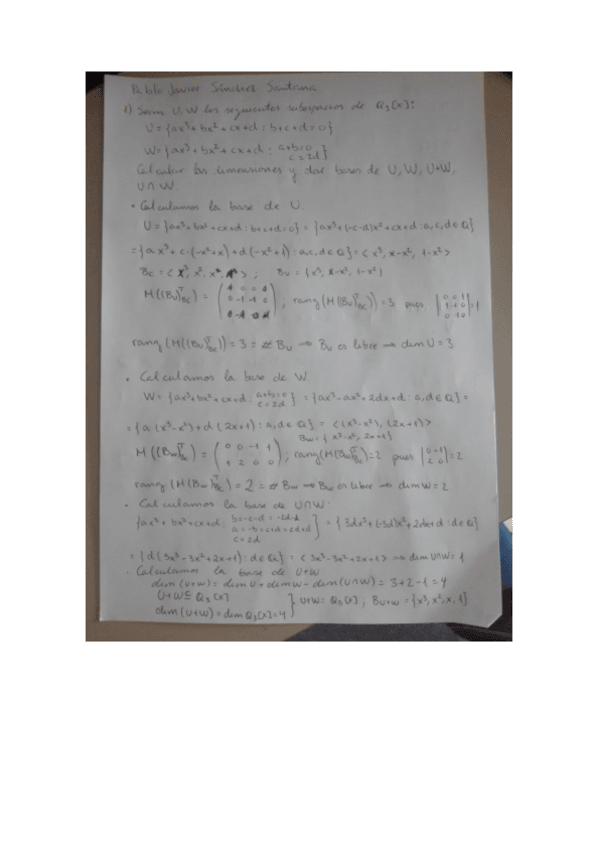 Pablo Javier Sánchez Santana
1) Sean U, W los siguientes subespacios de Q₃[x]:
U = {ax³ + bx² + cx + d : b+c+d=0}
W = {ax³ + bx² + cx + d : a+b=0 c=2d}
Calcular las dimensiones y dar bases de U, W, U+W,
U∩W.
• Calculamos la base de U.
U = {ax³+bx²+cx+d : b+c+d=0} = {ax³+(-c-d)x²+cx+d : a,c,d∈Q}
= {ax³ + c·(-x²+x) + d(-x²+1) : a,c,d∈Q} = <x³, x-x², 1-x²>
; B_U = {x³, x-x², 1-x²}
M((B_U)ᵀ_BC) = ; rang(M((B_U)ᵀ_BC)) = 3 pues
rang(M((B_U)ᵀ_BC)) = 3 = # B_U → B_U es libre → dim U = 3
• Calculamos la base de W
W = {ax³+bx²+cx+d : a+b=0 c=2d} = {ax³-ax²+2dx+d : a,d∈Q} =
= {a(x³-x²)+d(2x+1) : a,d∈Q} = <(x³-x²), (2x+1)>
B_W = {x³-x², 2x+1}
M((B_W)ᵀ_BC) = ; rang(M(B_W)ᵀ_BC) = 2 pues
rang(M(B_W)ᵀ_BC) = 2 = # B_W → B_W es libre → dim W = 2
• Calculamos la base de U∩W.
{ax³+bx²+cx+d : b=-c-d=-2d-d a=-b=c+d=2d+d c=2d} = {3dx³+(-3d)x²+2dx+d : d∈Q}
= {d(3x³-3x²+2x+1) : d∈Q} = <3x³-3x²+2x+1> → dim U∩W = 1
• Calculamos la base de U+W
dim(U+W) = dim U + dim W - dim(U∩W) = 3+2-1 = 4
U+W ⊆ Q₃[x]
dim(U+W) = dim Q₃[x] = 4 } U+W = Q₃[x] ; B_U+W = {x³, x², x, 1}